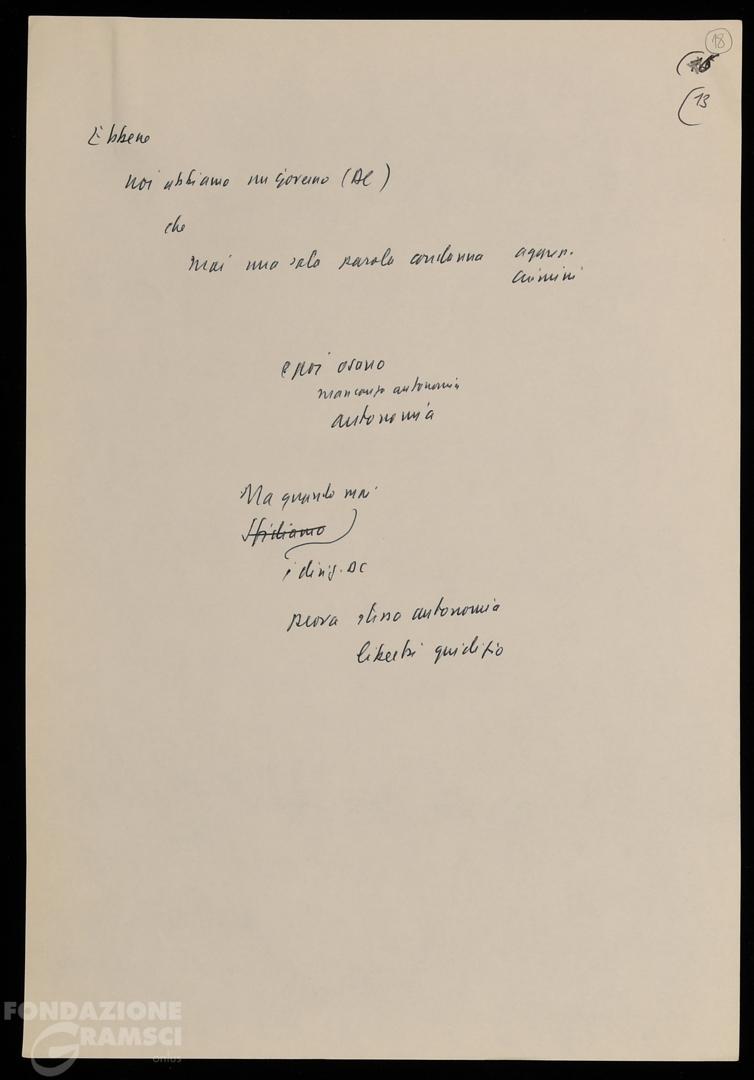 18
(13
Ebbene
noi abbiamo un governo (DC)
che
mai una sola parola condanna aggress.
crimini
e poi osano
mancanza autonomia
autonomia
Ma quando mai
Sfidiamo
i dirig. DC
prova stessa autonomia
libertà giudizio
FONDAZIONE
GRAMSCI
onlus